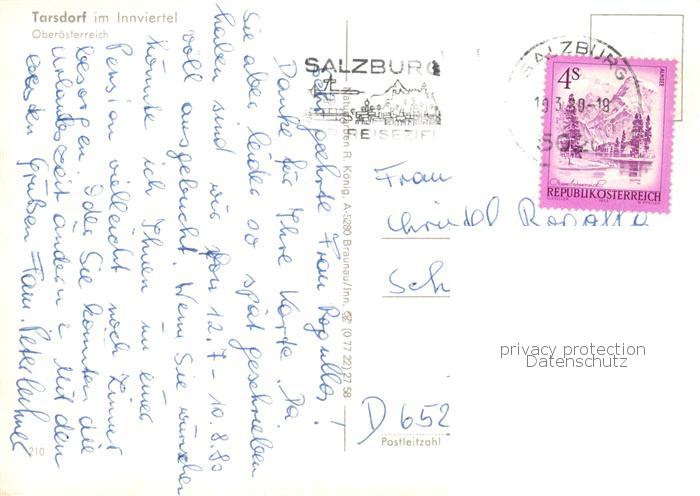 Tarsdorf im Innviertel
Oberösterreich
Sehr geehrte Frau Rogullas!
Danke für Ihre Karte. Da
Sie aber leider so spät geschrieben
haben sind wir von 12.7 - 10.8.80
voll ausgebucht. Wenn Sie wünschen
könnte ich Ihnen in einer
Pension vielleicht noch Zimmer
besorgen. Oder Sie könnten die
Urlaubszeit ändern? Mit den
besten Grüßen Fam. Peterlechner
210
Naturfarben R. König, A-5280 Braunau/Inn, ☏ (0 77 22) 27 58
SALZBURG
REISEZIEL
SALZBURG
19.3.80-18
50
4S
ALMSEE
REPUBLIK ÖSTERREICH
Frau
Christl
Sch
D 652
Postleitzahl
privacy protection
Datenschutz